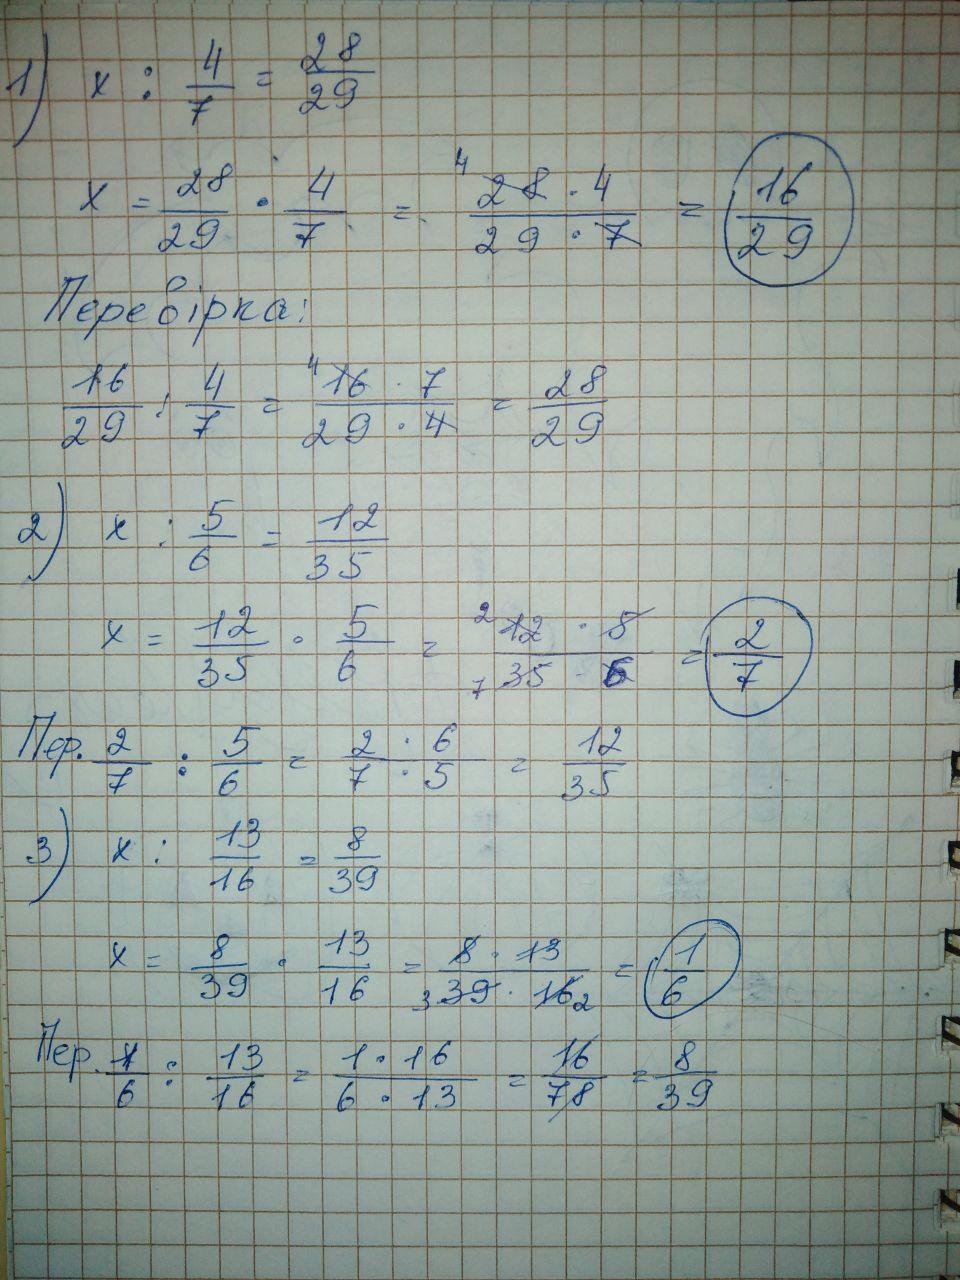 1) x : 4/7 = 28/29
x = 28/29 · 4/7 = 28 · 4 / 29 · 7 = 16/29
Перевірка:
16/29 : 4/7 = 16 · 7 / 29 · 4 = 28/29
2) x : 5/6 = 12/35
x = 12/35 · 5/6 = 12 · 5 / 35 · 6 = 2/7
Пер. 2/7 : 5/6 = 2 · 6 / 7 · 5 = 12/35
3) x : 13/16 = 8/39
x = 8/39 · 13/16 = 8 · 13 / 39 · 16 = 1/6
Пер. 1/6 : 13/16 = 1 · 16 / 6 · 13 = 16/78 = 8/39